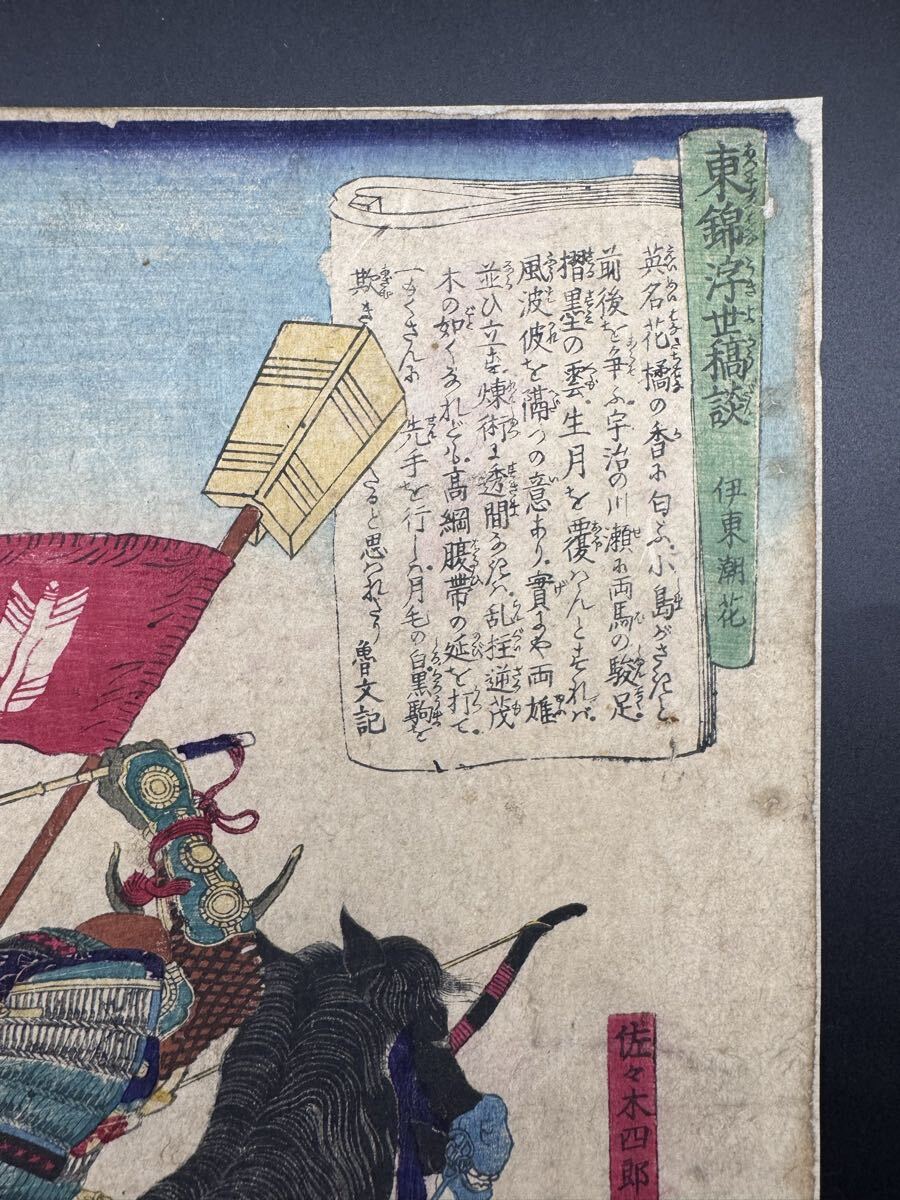 東錦浮世稿談
伊東潮花
英名花橘の香に匂ふ小島がさきに
前後を争ふ宇治の川瀬に両馬の駿足
摺墨の雲生月を覆はんとすれバ
風波彼を隔つの意あり實にや両雄
並ひ立ず煉術に透間なけれバ乱拄逆茂
木の如くなれども高綱腹帯の延を打て
一もくさんに先手を行しハ月毛の白黒駒を
欺き たると思ハれたり
魯文記
佐々木四郎